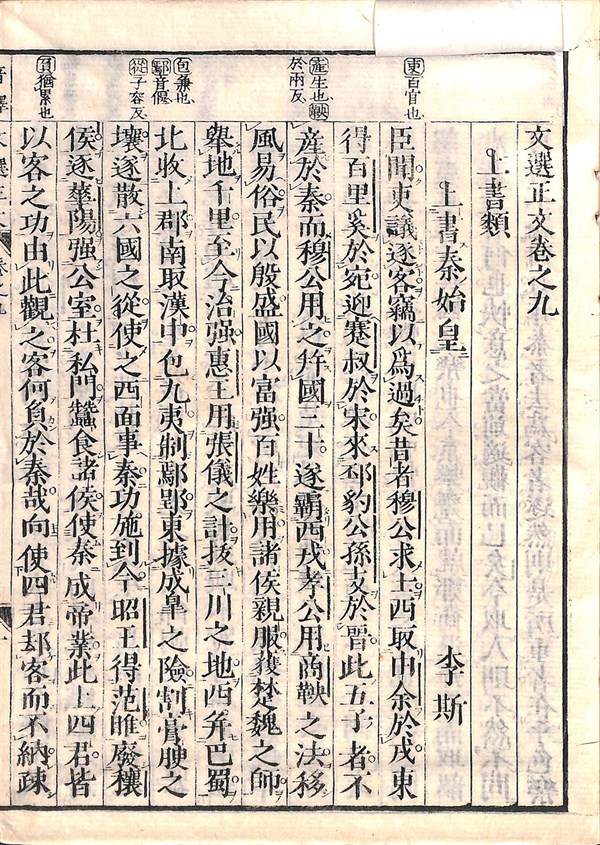 吏百官也
産生也鞅
於兩反
包兼也
鄢音偃
從子容反
負猶累也
文選正文卷之九
上書類
上書秦始皇 李斯
臣聞吏議逐客竊以爲過矣昔者穆公求士西取由余於戎東
得百里奚於宛迎蹇叔於宋來邳豹公孫支於晋此五子者不
産於秦而穆公用之幷國三十遂霸西戎孝公用商鞅之法移
風易俗民以殷盛國以富强百姓樂用諸侯親服獲楚魏之師
舉地千里至今治强惠王用張儀之計拔三川之地西幷巴蜀
北收上郡南取漢中包九夷制鄢郢東據成臯之險割膏腴之
壤遂散六國之從使之西面事秦功施到今昭王得范雎廢穰
侯逐華陽强公室杜私門蠶食諸侯使秦成帝業此上四君皆
以客之功由此觀之客何負於秦哉向使四君却客而不納疎